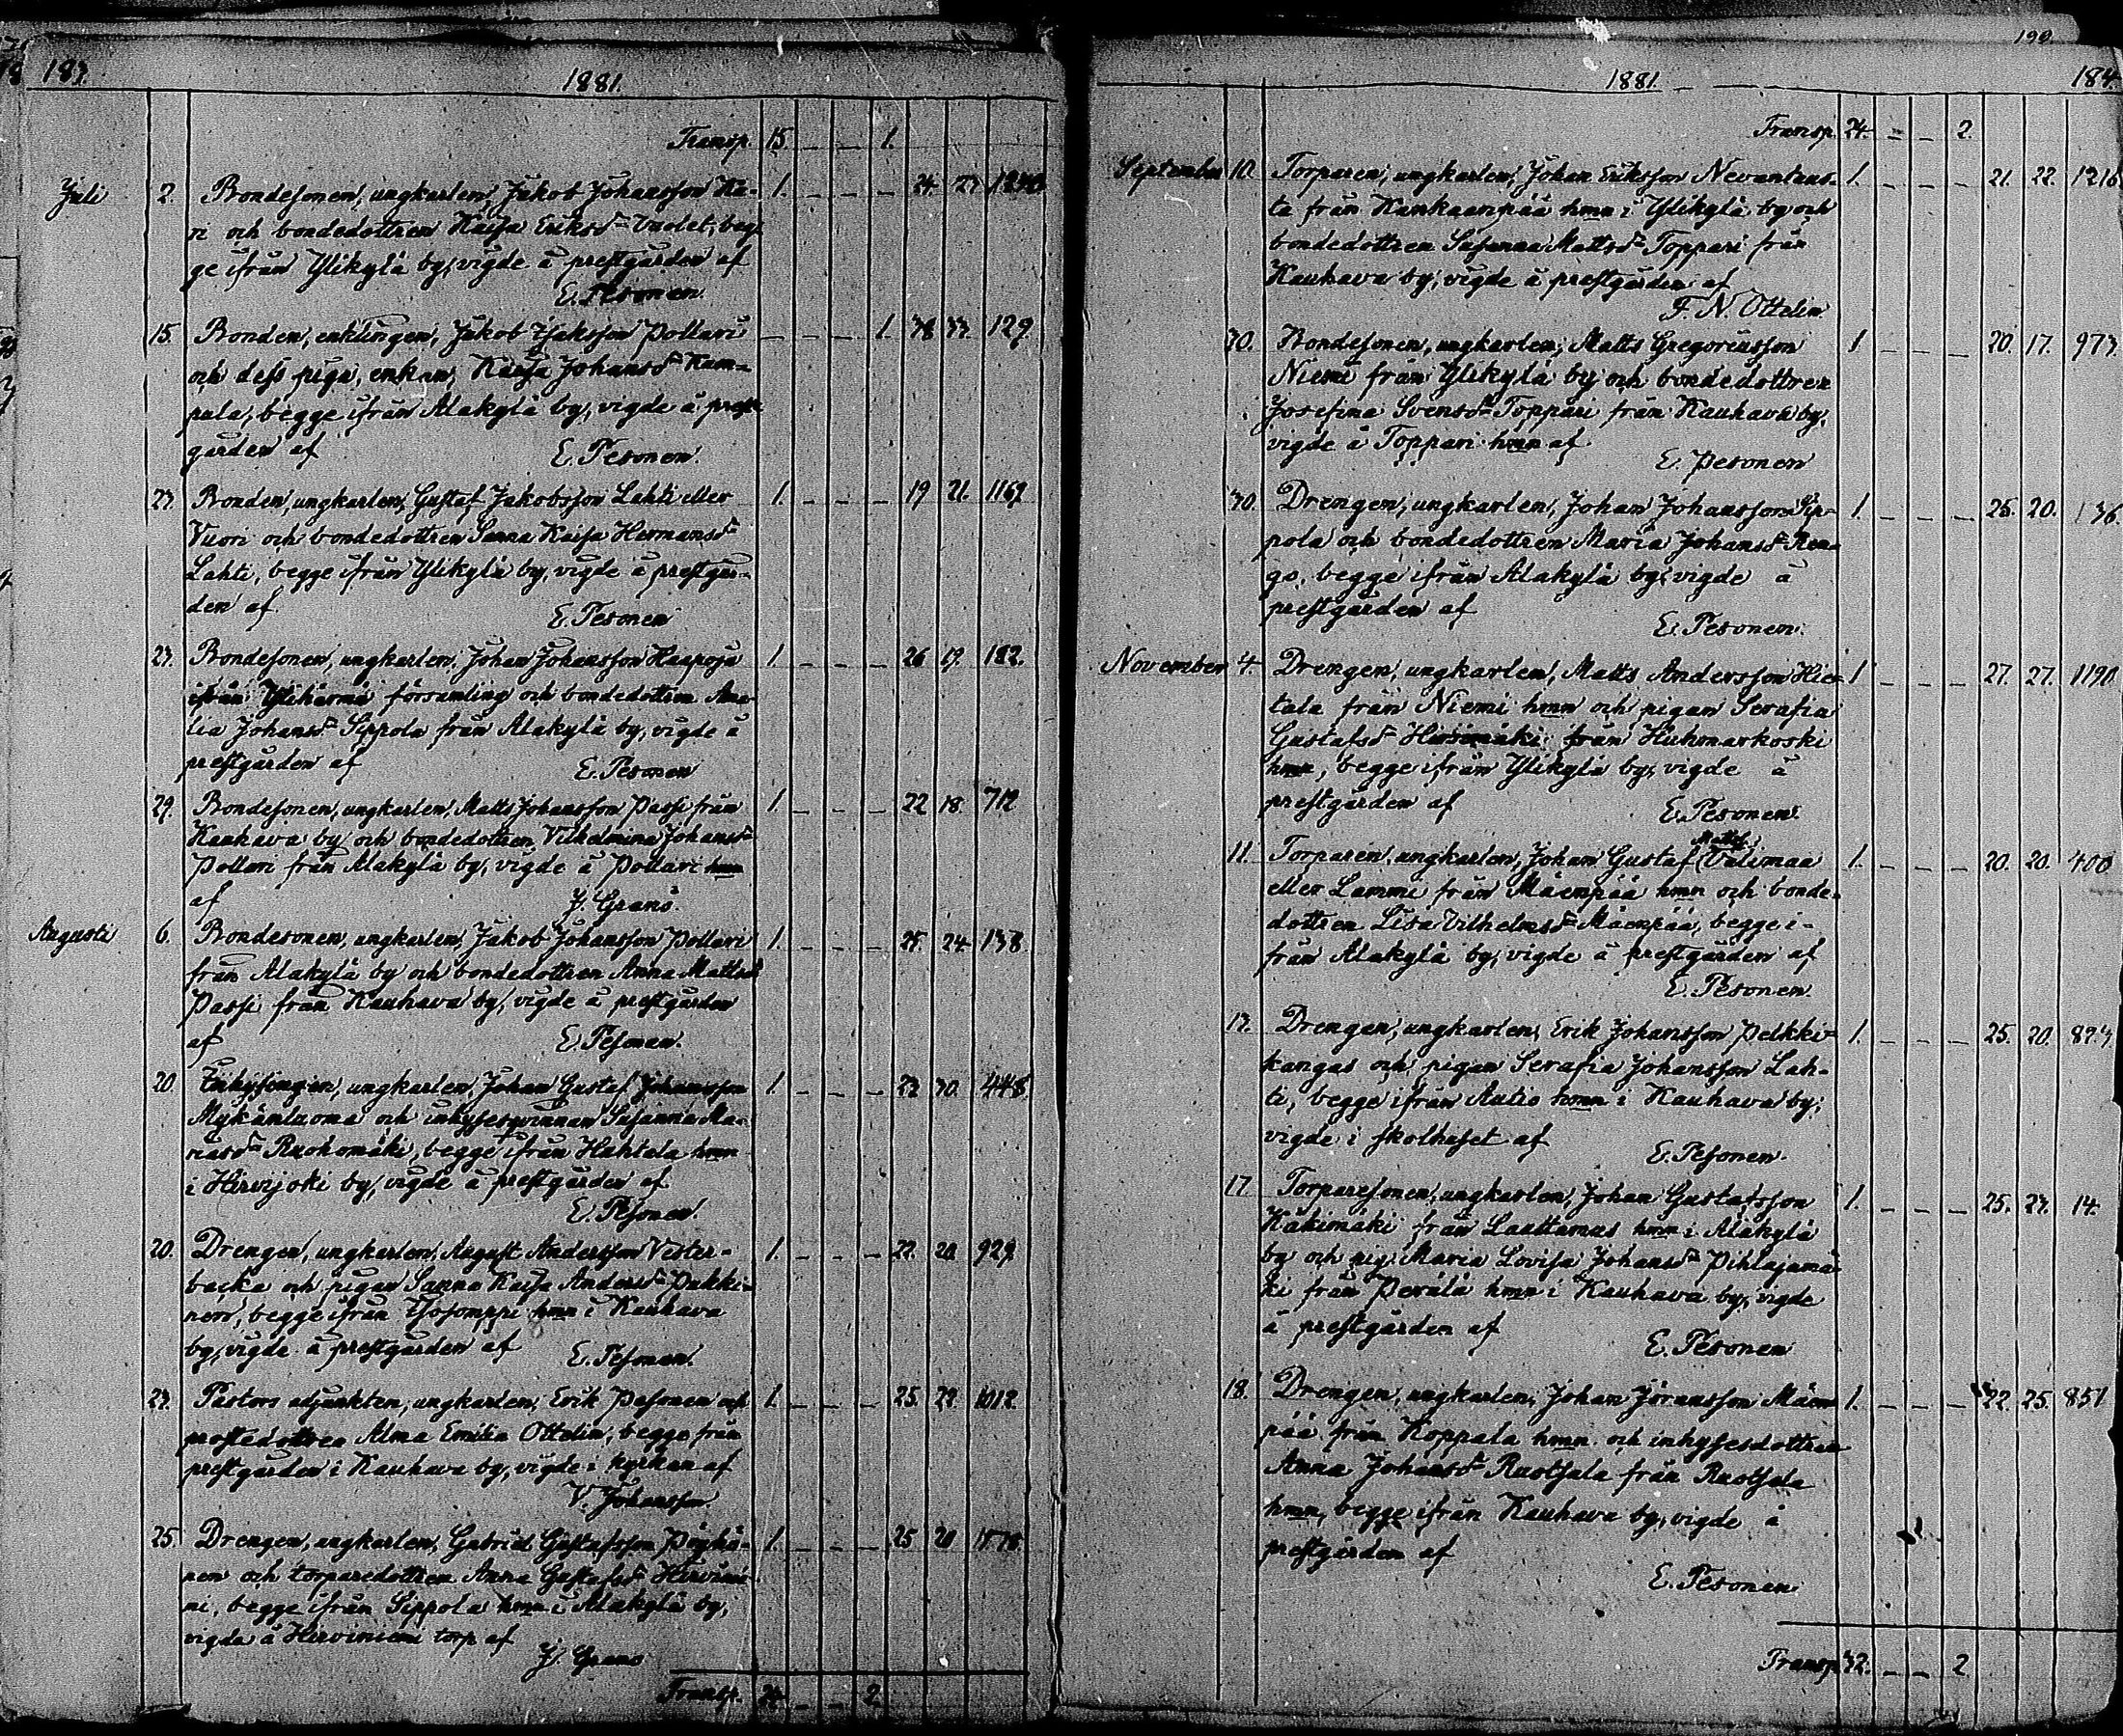 183. 1881.
Transp. 15. _ _ 1.
Juli 2. Bondesonen, ungkarlen, Jakob Johansson Ka- 1. _ _ _ 24. 23.
ri och bondedottren Kaisa Eriksdr Vuolet, beg-
ge ifrån Ylikylä by, vigde å prestgården af
E. Pesonen.
15. Bonden, enklingen, Jakob Isaksson Pollari _ _ _ 1. 38 33. 129.
och dess piga, enkan, Kaisa Johansdr Kam-
pula, begge ifrån Alakylä by, vigde å prest-
gården af E. Pesonen.
23. Bonden, ungkarlen, Gustaf Jakobsson Lahti eller 1. _ _ _ 19 21. 1169.
Vuori och bondedottren Sanna Kaisa Hermansdr
Lahti, begge ifrån Ylikylä by, vigde å prestgår-
den af E. Pesonen
23. Bondesonen, ungkarlen, Johan Johansson Haapoja 1. _ _ _ 26 19. 182.
ifrån Ylihärmä församling och bondedottren Ama-
lia Johansdr Sippola från Alakylä by, vigde å
prestgården af E. Pesonen
29. Bondesonen, ungkarlen, Matts Johansson Passi från 1. _ _ _ 22 18. 712
Kauhava by och bondedottren Vilhelmina Johansdr
Pollari från Alakylä by, vigde å Pollari hmn
af J. Granö.
Augusti 6. Bondesonen, ungkarlen, Jakob Johansson Pollari 1. _ _ _ 25. 24. 138
från Alakylä by och bondedottren Anna Mattsdr
Passi från Kauhava by, vigde å prestgården
af E. Pesonen.
20. Inhysingen, ungkarlen, Johan Gustaf Johansson 1. _ _ _ 23 30. 448.
Mykänluoma och inhysesqvinnan Susanna Ma-
riasdr Ruohomäki, begge ifrån Hahtala hmn
i Hirvijoki by, vigde å prestgården af
E. Pesonen.
20. Drengen, ungkarlen, August Andersson Vester- 1. _ _ _ 22. 20. 929.
backa och pigan Sanna Kaisa Andersdr Pukki-
nen, begge ifrån Isosomppi hmn i Kauhava
by, vigde å prestgården af E. Pesonen.
23. Pastors adjunkten, ungkarlen, Erik Pesonen och 1. _ _ _ 25. 22. 1012.
prostedottren Alma Emilia Ottelin, begge från
prestgården i Kauhava by, vigde i kyrkan af
V. Johansson.
25. Drengen, ungkarlen, Gabriel Gustafsson Pöyhö- 1. _ _ _ 25 20
nen och torparedottren Anna Gustafsdr Hirvinie-
mi, begge ifrån Sippola hmn i Alakylä by,
vigde å Hirviniemi torp af
J. Granö
Transp. 24. _ _ 2.
190.
1881. 184.
Transp. 24. _ _ 2.
September 10. Torparen, ungkarlen, Johan Eriksson Nevanlaus- 1. _ _ _ 21. 22. 1218
ta från Kankaanpää hmn i Ylikylä by och
bondedottren Susanna Mattsdr Toppari från
Kauhava by, vigde å prestgården af
F. N. Ottelin.
30. Bondesonen, ungkarlen, Matts Gregoriusson 1 _ _ _ 20. 17. 973.
Niemi från Ylikylä by och bondedottren
Josefina Svensdr Toppari från Kauhava by,
vigde å Toppari hmn af
E. Pesonen
30. Drengen, ungkarlen, Johan Johansson Sip- 1. _ _ _ 25. 20. 136
pola och bondedottren Maria Johansdr Ren-
go, begge ifrån Alakylä by, vigde å
prestgården af
E. Pesonen.
November 4. Drengen, ungkarlen, Matts Andersson Hie- 1 _ _ _ 27. 27. 1190
tala från Niemi hmn och pigan Serafia
Gustafsdr från Huhmarkoski
hmn, begge ifrån Ylikylä by, vigde å
prestgården af E. Pesonen.
Mattss.
11. Torparen, ungkarlen, Johan Gustaf Välimaa 1. _ _ _ 20. 20. 400
eller Lammi från Mäenpää hmn och bonde-
dottren Lisa Vilhelmsdr Mäenpää, begge i-
från Alakylä by, vigde å prestgården af
E. Pesonen.
13. Drengen, ungkarlen, Erik Johansson Pelkki- 1. _ _ _ 25. 20. 823.
kangas och pigan Serafia Johansson Lah-
ti, begge ifrån Autio hmn i Kauhava by,
vigde i skolhuset af
E. Pesonen.
17. Torparesonen, ungkarlen, Johan Gustafsson 1. _ _ _ 25. 23. 14.
Käkimäki från Laattamus hmn i Alakylä
by och pig. Maria Lovisa Johansdr Pihlajamä-
ki från Perälä hmn i Kauhava by, vigde
å prestgården af
E. Pesonen
18. Drengen, ungkarlen, Johan Jöransson Mäen- 1. _ _ _ 22. 25. 851
pää från Koppala hmn och inhysesdottren
Anna Johansdr Ruotsala från Ruotsala
hmn, begge ifrån Kauhava by, vigde å
prestgården af
E. Pesonen
Transp. 32. _ _ 2